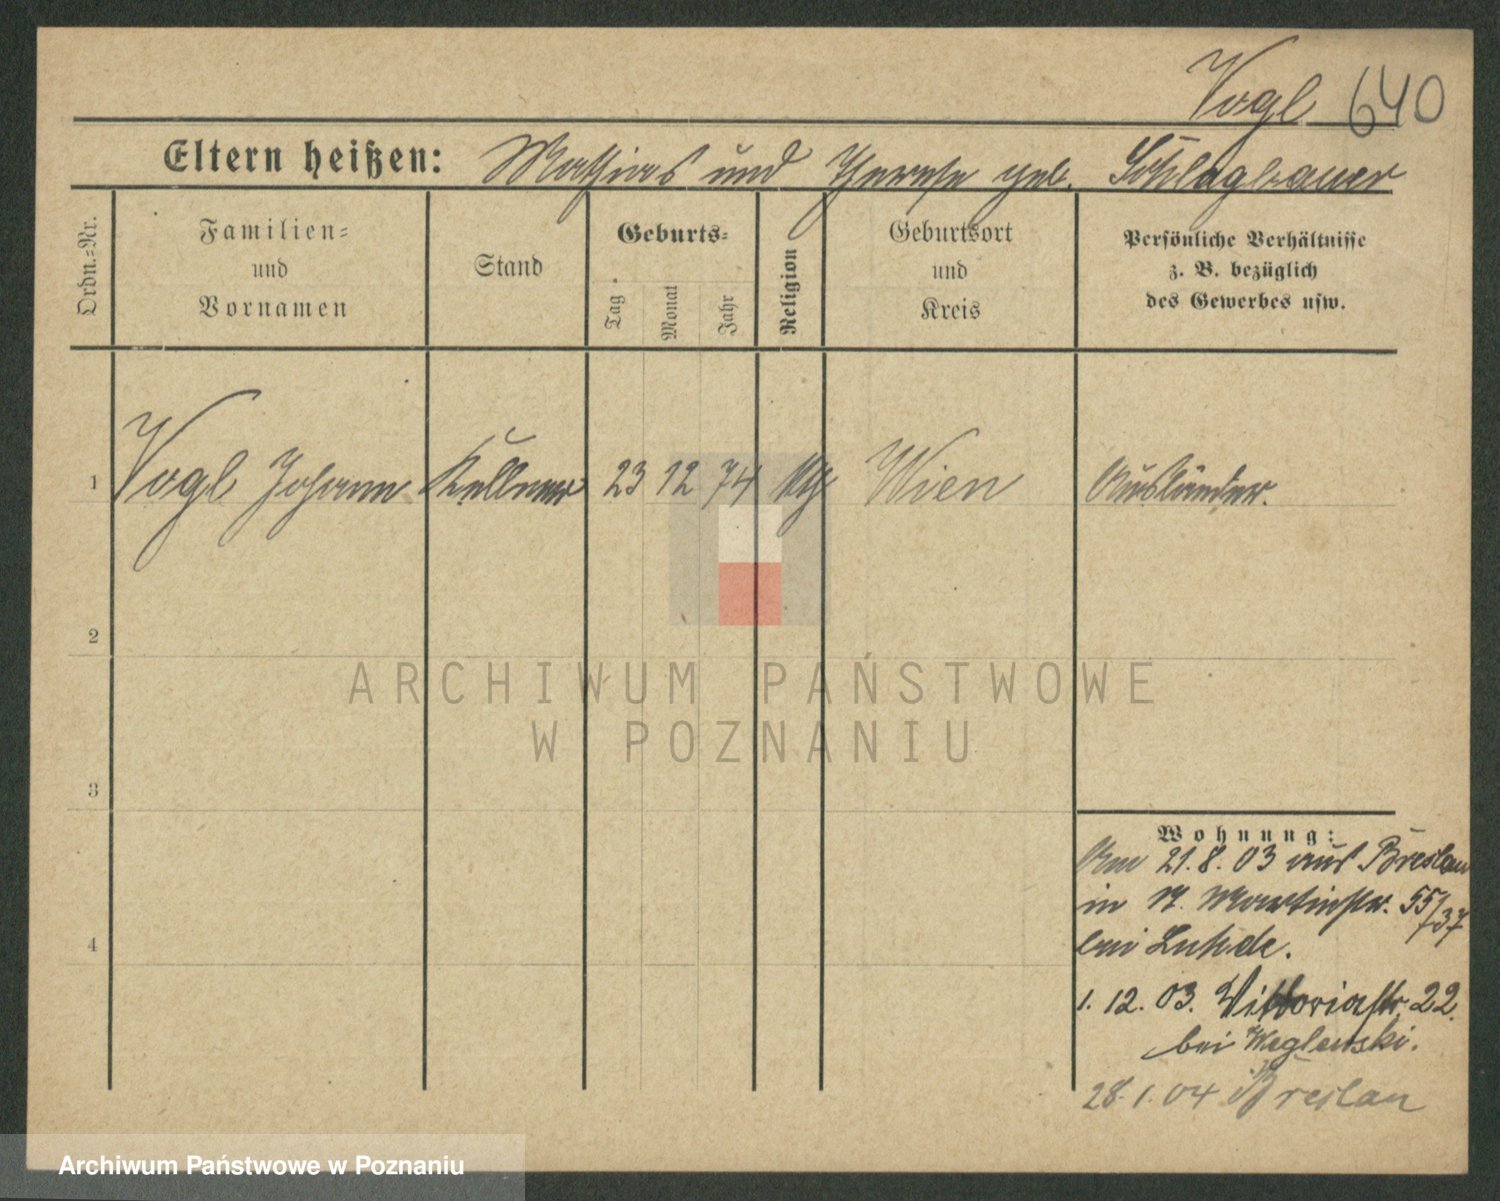 Vogl 640
Eltern heißen: Mathias und Therese geb. Schlagbauer
Ordn.-Nr.
Familien-
und
Vornamen
Stand
Geburts-
Tag
Monat
Jahr
Religion
Geburtsort
und
Kreis
Persönliche Verhältnisse
z. B. bezüglich
des Gewerbes usw.
1 Vogl Johann Kellner 23 12 74 kth Wien Ausländer.
2
ARCHIWUM PAŃSTWOWE
W POZNANIU
3
Wohnung:
Am 21. 8. 03 aus Breslau
in St. Martinstr. 55/37
bei
4
1. 12. 03. Viktoriastr. 22.
bei Weglewski.
28. 1. 04 Breslau
Archiwum Państwowe w Poznaniu